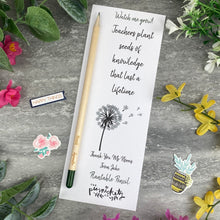 Watch me grow!
Teachers plant
seeds of
knowledge
that last a
lifetime
Thank You Ms Moons
from Jake
Plantable Pencil